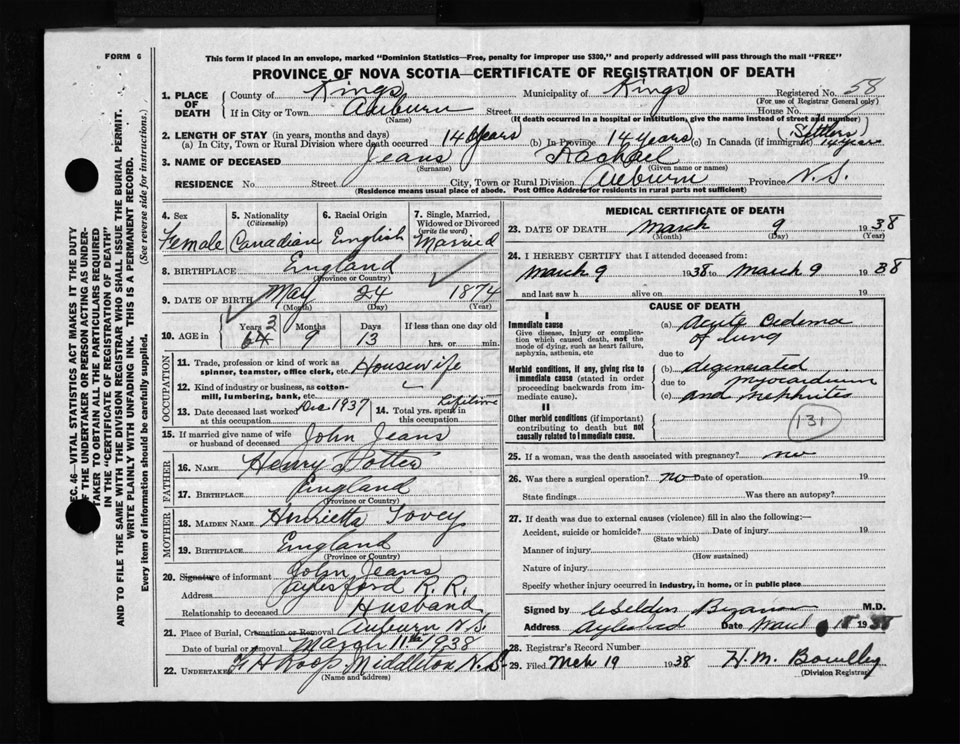 FORM 6
This form if placed in an envelope, marked "Dominion Statistics—Free, penalty for improper use $300," and properly addressed will pass through the mail "FREE"
PROVINCE OF NOVA SCOTIA—CERTIFICATE OF REGISTRATION OF DEATH
1. PLACE OF DEATH { County of Kings Municipality of Kings Registered No. 58
(For use of Registrar General only)
If in City or Town Auburn Street House No.
(Name) (If death occurred in a hospital or institution, give the name instead of street and number)
2. LENGTH OF STAY (in years, months and days) (Settlers)
(a) In City, Town or Rural Division where death occurred 14 (years) (b) In Province 14 years (c) In Canada (if immigrant) 14 years
3. NAME OF DECEASED Jeans Rachael
(Surname) (Given name or names)
RESIDENCE No. Street City, Town or Rural Division Auburn Province N.S.
(Residence means usual place of abode. Post Office Address for residents in rural parts not sufficient)
4. Sex Female
5. Nationality (Citizenship) Canadian
6. Racial Origin English
7. Single, Married, Widowed or Divorced (write the word) Married
8. BIRTHPLACE England
(Province or Country)
9. DATE OF BIRTH May 24 1874
(Month) (Day) (Year)
10. AGE in Years 64 3 Months 9 Days 13 If less than one day old hrs. or min.
OCCUPATION
11. Trade, profession or kind of work as spinner, teamster, office clerk, etc. Housewife
12. Kind of industry or business, as cotton-mill, lumbering, bank, etc.
13. Date deceased last worked at this occupation Dec. 1937 14. Total yrs. spent in this occupation Lifetime
15. If married give name of wife or husband of deceased John Jeans
FATHER
16. NAME Henry Potter
17. BIRTHPLACE England
(Province or Country)
MOTHER
18. MAIDEN NAME Henrietta Tovey
19. BIRTHPLACE England
(Province or Country)
20. Signature of informant John Jeans
Address Aylesford R.R.
Relationship to deceased Husband
21. Place of Burial, Cremation or Removal Auburn N.S.
Date of burial or removal March 11th 1938
22. UNDERTAKER Middleton N.S.
(Name and address)
MEDICAL CERTIFICATE OF DEATH
23. DATE OF DEATH March 9 1938
(Month) (Day) (Year)
24. I HEREBY CERTIFY that I attended deceased from:
March 9 1938 to March 9 1938
and last saw h alive on 19
CAUSE OF DEATH
I
Immediate cause
Give disease, injury or complication which caused death, not the mode of dying, such as heart failure, asphyxia, asthenia, etc
(a) Acute Oedema of lung
due to
Morbid conditions, if any, giving rise to immediate cause (stated in order proceeding backwards from immediate cause).
(b) degenerated
due to myocardium
(c) and nephritis
II
Other morbid conditions (if important) contributing to death but not causally related to immediate cause.
131
25. If a woman, was the death associated with pregnancy? no
26. Was there a surgical operation? no Date of operation 19
State findings Was there an autopsy?
27. If death was due to external causes (violence) fill in also the following:—
Accident, suicide or homicide? Date of injury 19
(State which)
Manner of injury
(How sustained)
Nature of injury
Specify whether injury occurred in industry, in home, or in public place
Signed by M.D.
Address Aylesford Date
28. Registrar's Record Number
29. Filed Mch 19 1938 H.M. Bowlby
(Division Registrar)
SEC. 46—VITAL STATISTICS ACT MAKES IT THE DUTY
OF THE UNDERTAKER OR PERSON ACTING AS UNDERTAKER
TO OBTAIN ALL THE PARTICULARS REQUIRED
IN THE "CERTIFICATE OF REGISTRATION OF DEATH"
AND TO FILE THE SAME WITH THE DIVISION REGISTRAR WHO SHALL ISSUE THE BURIAL PERMIT.
WRITE PLAINLY WITH UNFADING INK. THIS IS A PERMANENT RECORD.
Every item of information should be carefully supplied. (See reverse side for instructions.)